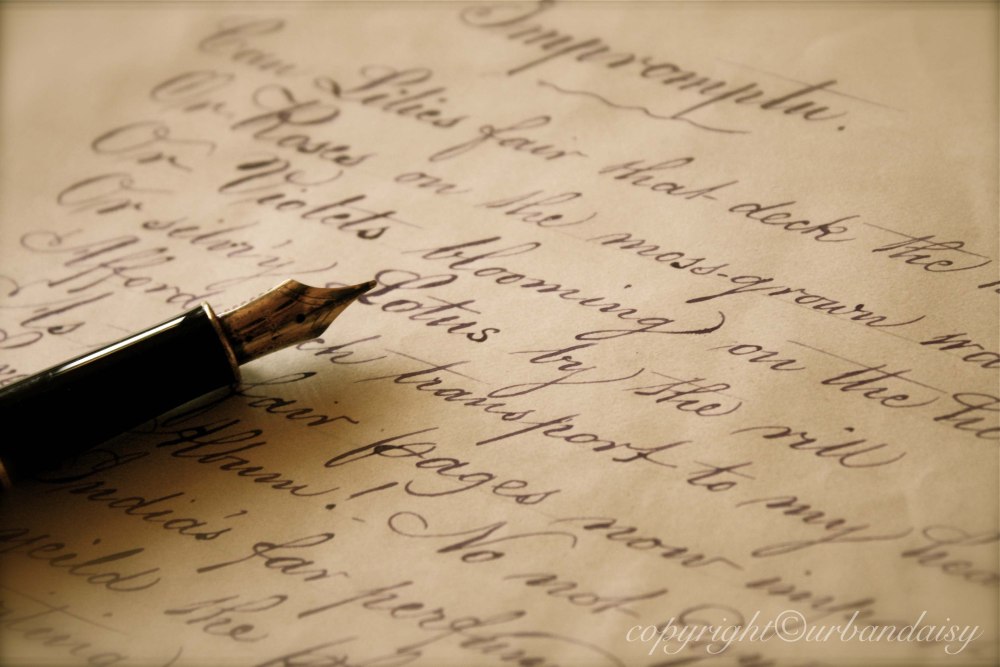 Impromptu.
Can Lilies fair that deck the
Or Roses on the moss-grown
Or Violets blooming on the
Or silv'ry Lotus by the rill
Afford transport to my
As fair pages now
Album! No not
India's far
the
copyright©urbandaisy